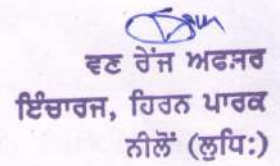 ਵਣ ਰੇਂਜ ਅਫਸਰ
ਇੰਚਾਰਜ, ਹਿਰਨ ਪਾਰਕ
ਨੀਲੋਂ (ਲੁਧਿ:)